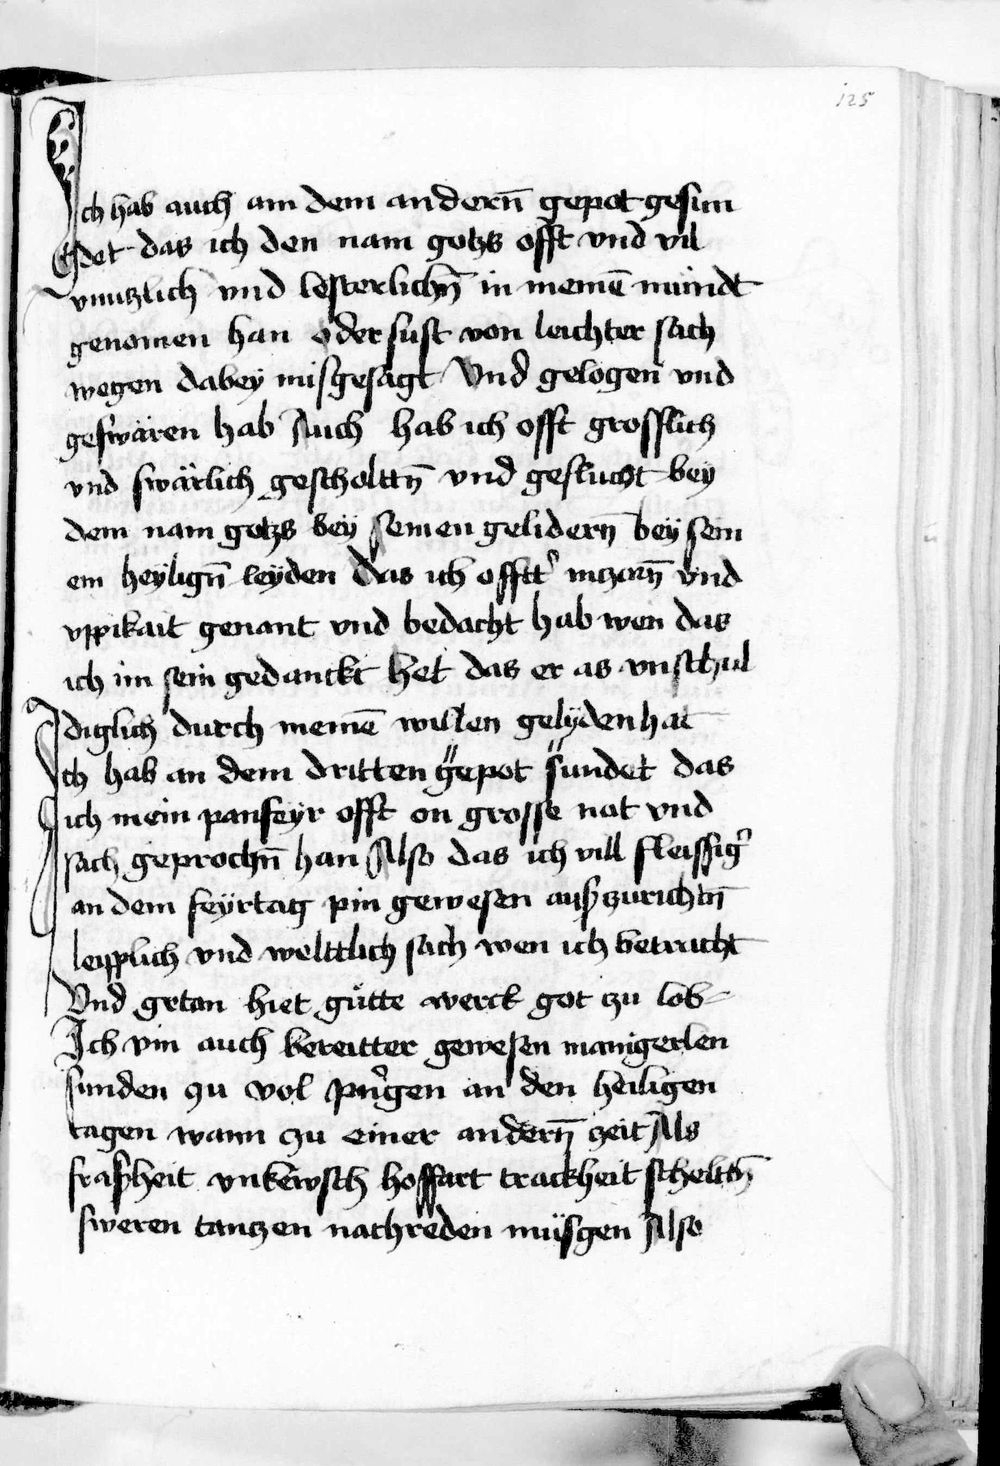 125
Ich hab auch am dem andern̄ gepot gesun
det das ich den nam gotzs offt vnd vil
vnutzlich vnd lesterlichn̄ in meinē mundt
genomen han oder sust von leichter sach
wegen dabey misgesagt Vnd gelogen vnd
geswaren hab Auch hab ich offt grosslich
vnd swärlich gescholttn̄ vnd geflucht bey
dem nam gotzs bey seinen gelidern̄ bey sein
em heylign̄ leyden das ich offtt' inzorn̄ vnd
vppikait genant vnd bedacht hab wen das
ich im sein gedanckt het das er as vnschul
diglich durch meinē willen gelyden hat
Ich hab an dem dritten gepot sundet das
ich mein panfeyr offt on grosse not vnd
sach geprochn̄ han Also das ich vill fleissig'
an dem feyrtag pin gewesen auszurichtn̄
leipplich vnd welttlich sach wen ich betracht
Vnd getan hiet gůtte werck got zu lob
Ich vin auch bereitter gewesen manigerlen
sunden zu vol pn'gen an den heiligen
tagen wann zu einer andern̄ zeit Als
frasheit vnkewsch hoffart trackheit scheltn̄
sweren tantzen nachreden müsgen Also